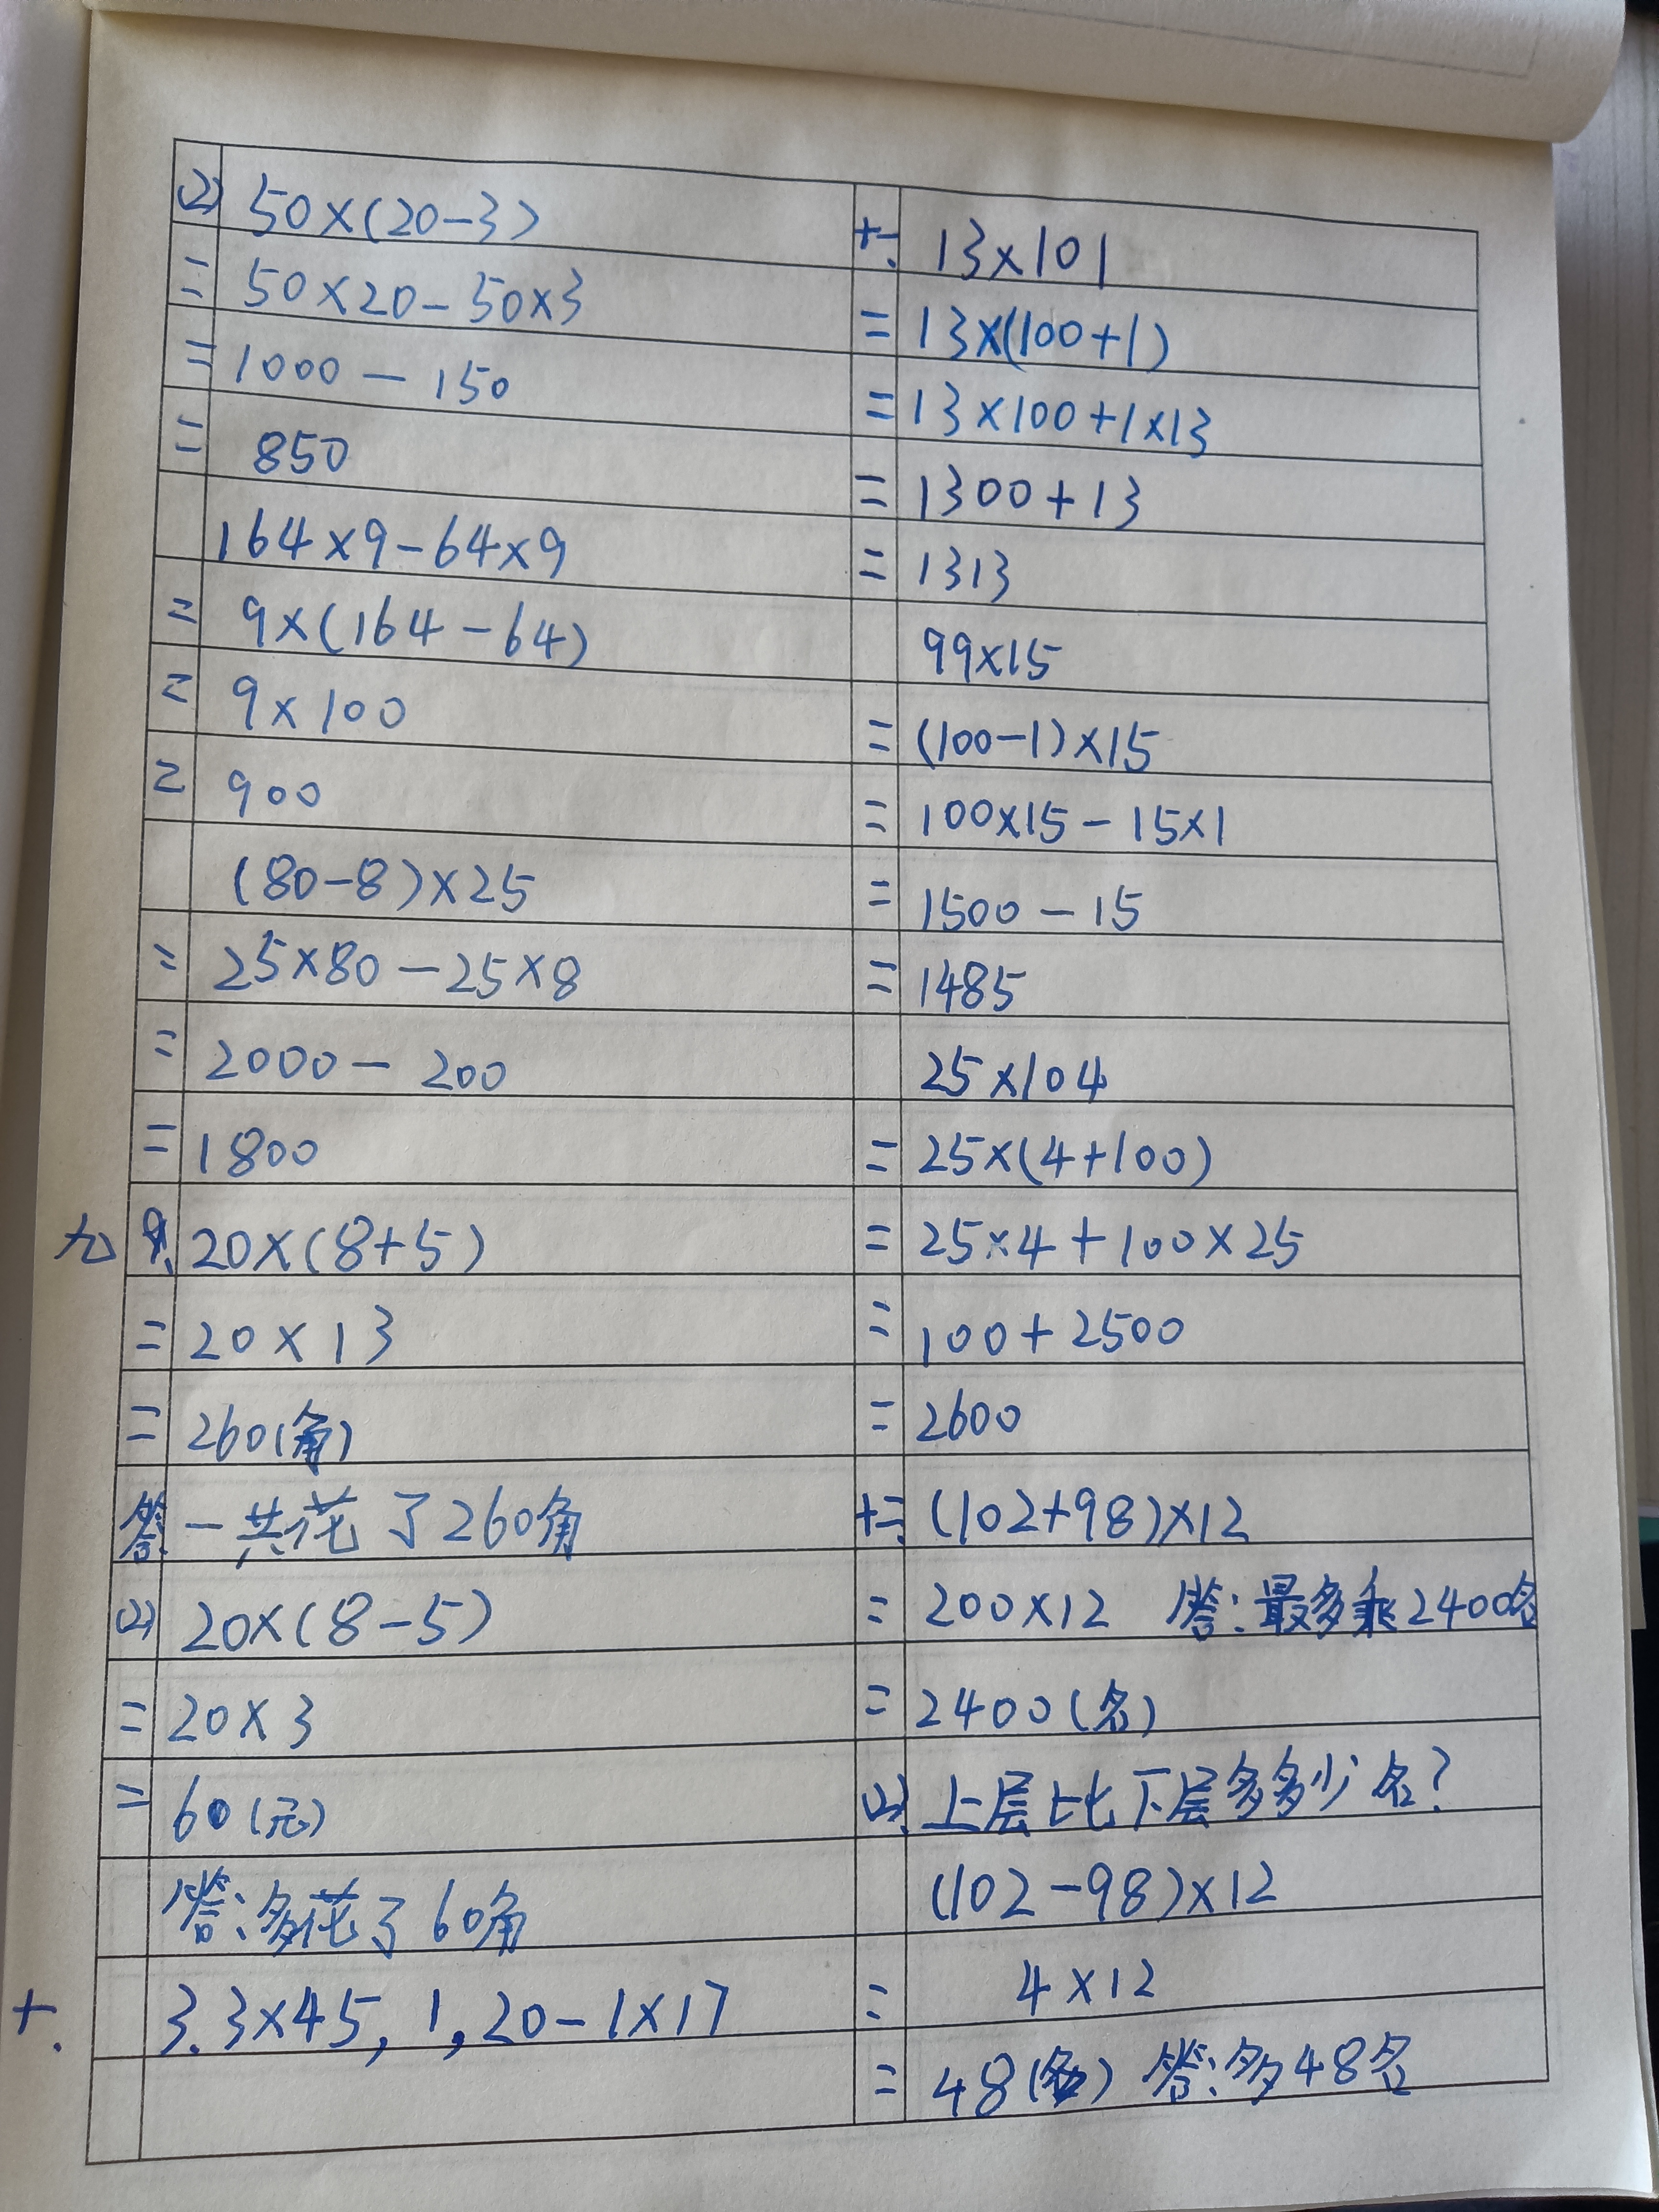 (2) 50×(20-3)
= 50×20-50×3
= 1000-150
= 850
164×9-64×9
= 9×(164-64)
= 9×100
= 900
(80-8)×25
= 25×80-25×8
= 2000-200
= 1800
九 9. 20×(8+5)
= 20×13
= 260(角)
答:一共花了260角
(2) 20×(8-5)
= 20×3
= 60(元)
答:多花了60角
十. 3.3×45, 1,20-1×17
十一. 13×101
= 13×(100+1)
= 13×100+1×13
= 1300+13
= 1313
99×15
= (100-1)×15
= 100×15-15×1
= 1500-15
= 1485
25×104
= 25×(4+100)
= 25×4+100×25
= 100+2500
= 2600
十二. (102+98)×12
= 200×12 答:最多乘2400名
= 2400(名)
(2). 上层比下层多多少名?
(102-98)×12
= 4×12
= 48(名) 答:多48名